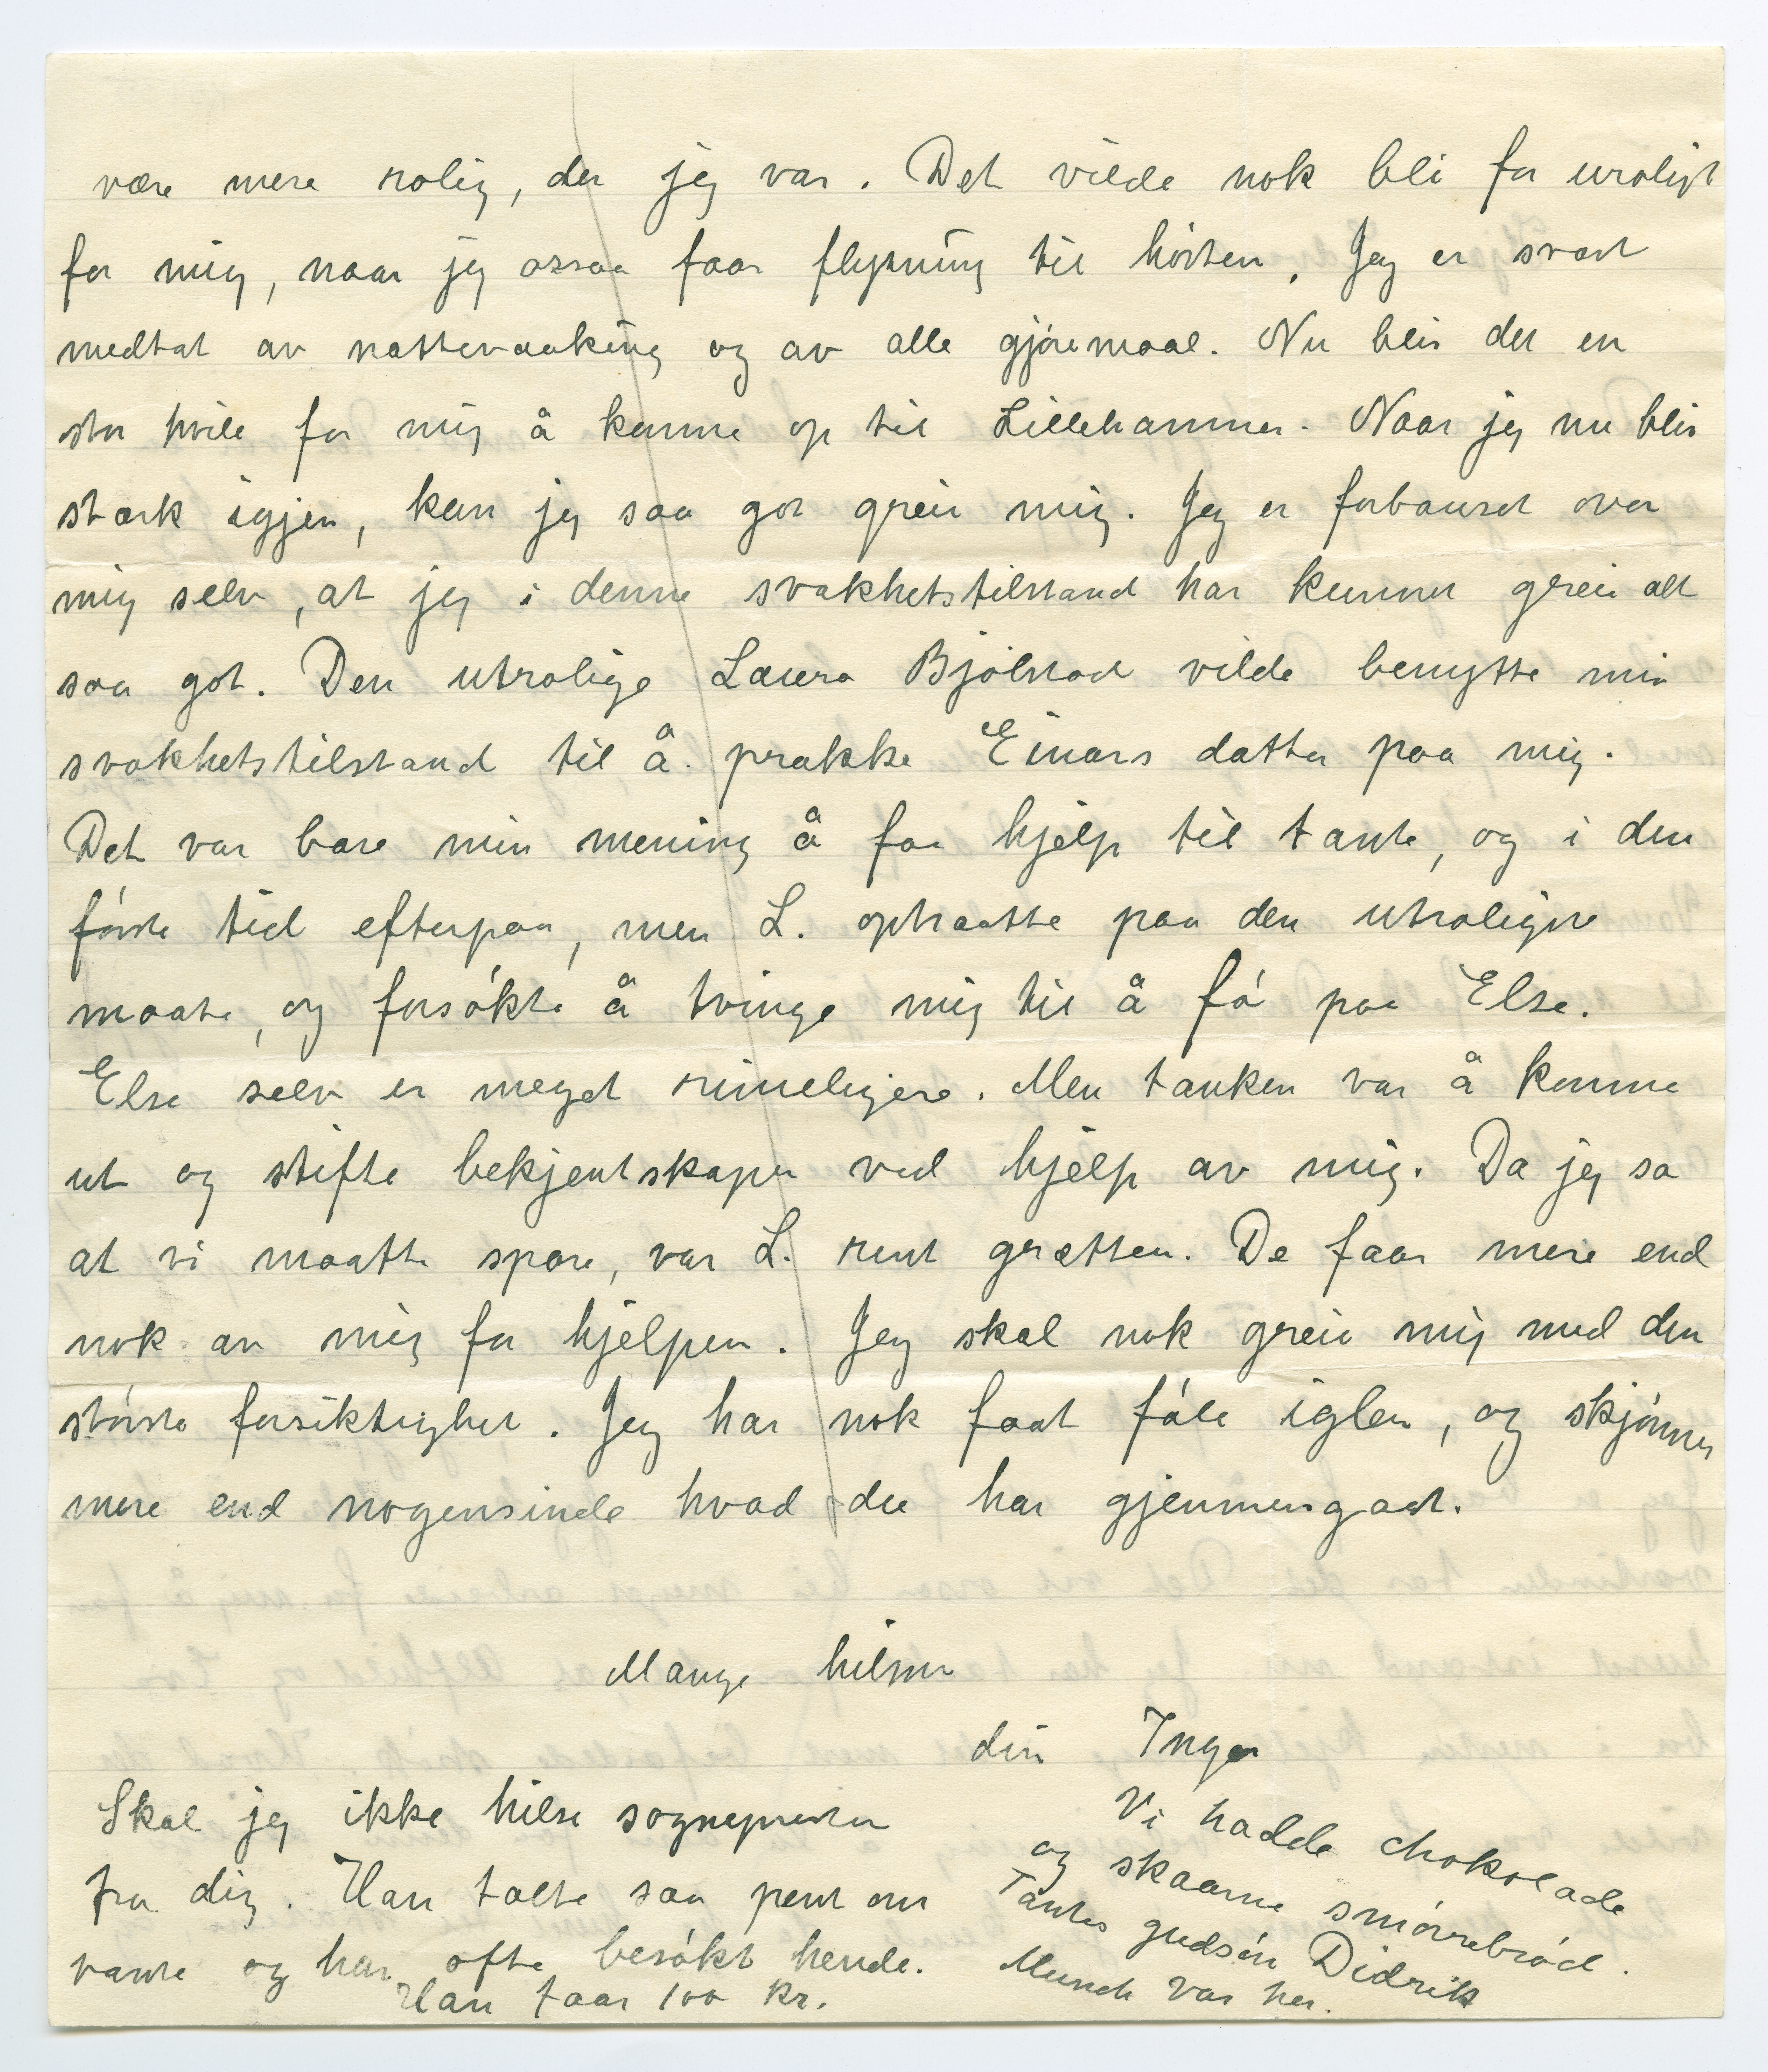 være mere rolig, der jeg var. Det vilde nok bli for uroligt
for mig, naar jeg ossaa faar flytning til høsten. Jeg er svært
medtat av nattevaaking og av alle gjøremaal. Nu blir det en
stor hvile for mig å komme op til Lillehammer. Naar jeg nu blir
stærk igjen, kan jeg saa got greie mig. Jeg er forbauset over
mig selv, at jeg i denne svakhetstilstand har kunnet greie alt
saa got. Den utrolige Laura Bjølstad vilde benytte min
svakhetstilstand til å prakke Einars datter paa mig.
Det var bare min mening å faa hjelp til tante, og i den
første tid efterpaa, men L. optraatte paa den utroligste
maate, og forsøkte å tvinge mig til å fø paa Else.
Else selv er meget rimeligere. Men tanken var å komme
ut og stifte bekjentskaper ved hjelp av mig. Da jeg sa
at vi maatte spare, var L. rent grætten. De faar mere end
nok av mig for hjelpen. Jeg skal nok greie mig med den
største forsiktighet. Jeg har nok faat føle iglen, og skjønner
mere end nogensinde hvad du har gjennemgaat.
Mange hilsner
din Inger
Skal jeg ikke hilse sognepresten
fra dig. Han talte saa pent om
tante og har ofte besøkt hende.
Han faar 100 kr.
Vi hadde chokolade
og skaarne smørrebrød.
Tantes gudsøn Didrik
Munch var her.